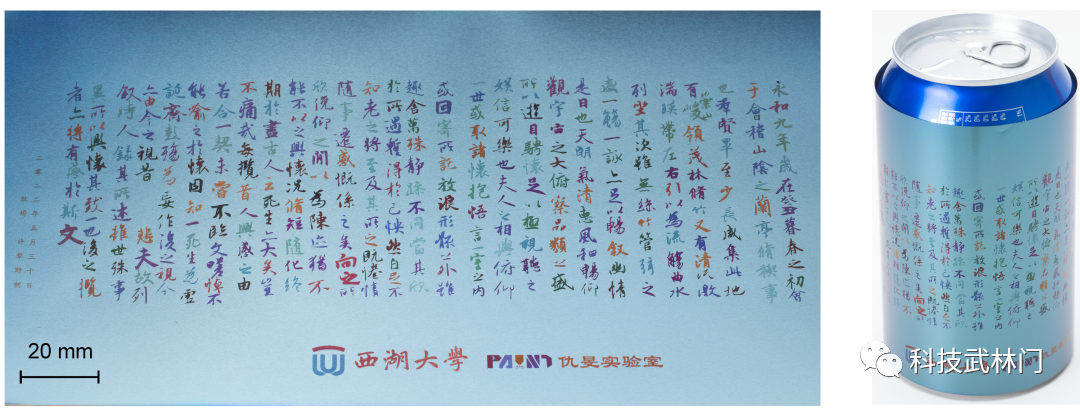 永和九年歲在癸丑暮春之初會
于會稽山陰之蘭亭脩稧事
也羣賢畢至少長咸集此地
有崇山峻領茂林脩竹又有清流激
湍暎帶左右引以為流觴曲水
列坐其次雖無絲竹管弦之
盛一觴一詠亦足以暢敘幽情
是日也天朗氣清惠風和暢仰
觀宇宙之大俯察品類之盛
所以遊目騁懷足以極視聽之
娛信可樂也夫人之相與俯仰
一世或取諸懷抱悟言一室之內
或因寄所託放浪形骸之外雖
趣舍萬殊靜躁不同當其欣
於所遇暫得於己怏然自足不
知老之將至及其所之既惓情
隨事遷感慨係之矣向之所
欣俛仰之閒以為陳迹猶不
能不以之興懷況脩短隨化終
期於盡古人云死生亦大矣豈
不痛哉每攬昔人興感之由
若合一契未嘗不臨文嗟悼不
能喻之於懷固知一死生為虛
誕齊彭殤為妄作後之視今
亦由今之視昔 悲夫故列
敘時人錄其所述雖世殊事
異所以興懷其致一也後之攬
者亦將有感於斯文
二零二二年五月三十日
20 mm
西湖大學 PAINT 仇旻实验室
科技武林门